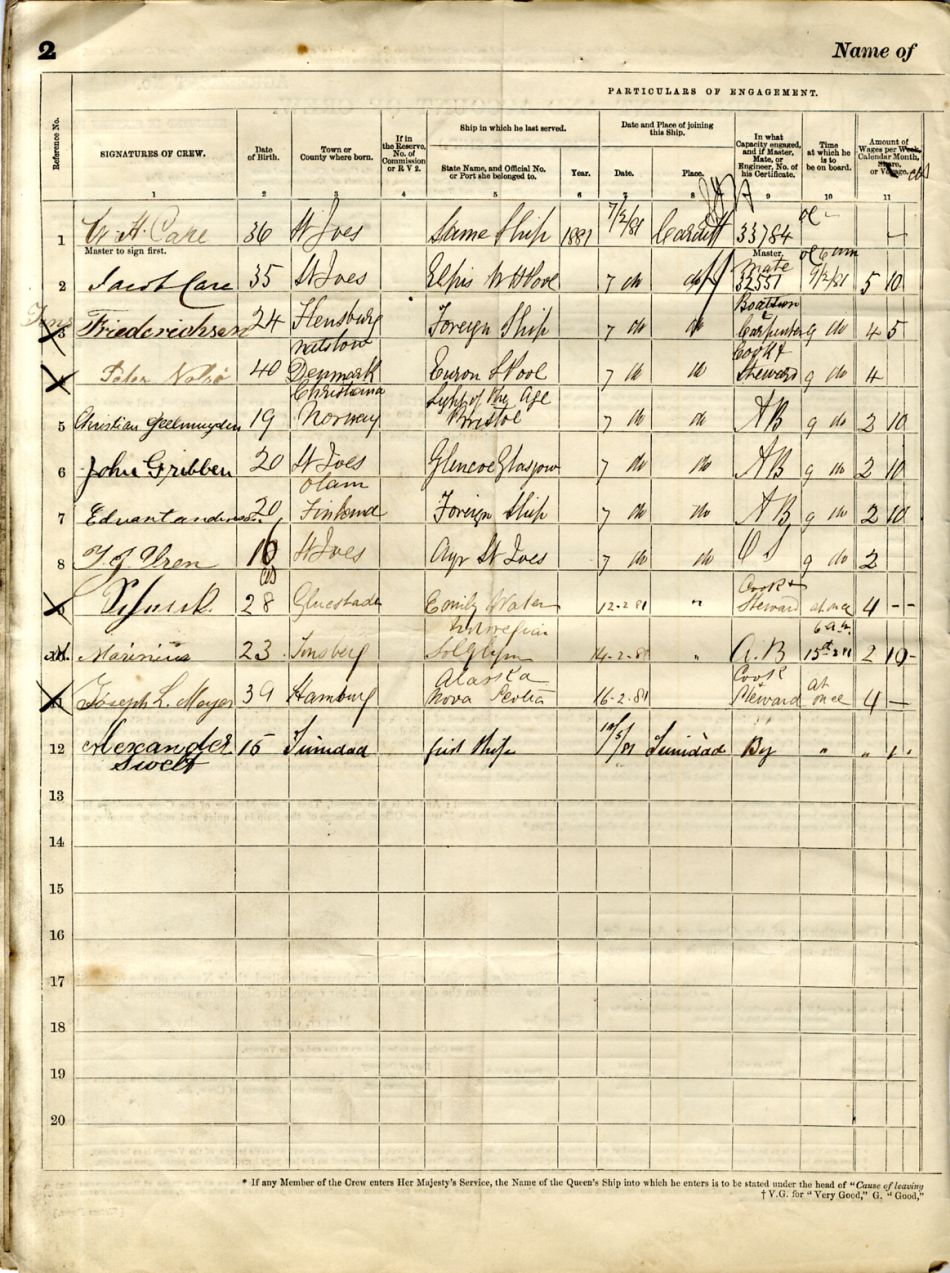 2
Name of
PARTICULARS OF ENGAGEMENT.
Reference No.
SIGNATURES OF CREW.
Date of Birth.
Town or County where born.
If in the Reserve, No. of Commission or R V 2.
Ship in which he last served.
State Name, and Official No. or Port she belonged to.
Year.
Date and Place of joining this Ship.
Date.
Place.
In what Capacity engaged, and if Master, Mate, or Engineer, No. of his Certificate.
Time at which he is to be on board.
Amount of Wages per Week, Calendar Month, Share, or Voyage.
1 2 3 4 5 6 7 8 9 10 11
1 36 St Ives Same Ship 1881 7/2/81 Cardiff 33784
Master to sign first.
Master,
2 Jacob Care 35 St Ives 7 do do Mate 32551 9/2/81 5 10
3 Friederichsen 24 Flensburg Foreign Ship 7 do do Boatswn & Carpenter 9 do 4 5
4 Peter 40 Denmark 7 do do Cook & Steward 9 do 4
5 Christian Geelmuyden 19 Christiana Norway Light of the Age Bristol 7 do do AB 9 do 2 10
6 John Gribben 20 St Ives Glencoe Glasgow 7 do do AB 9 do 2 10
7 20 Finland Foreign Ship 7 do do AB 9 do 2 10
8 16 St Ives Ayr St Ives 7 do do OS 9 do 2
9 28 Gluestade Emily 12-2-81 " Cook & Steward at once 4 --
10 Marinius 23 Tonsberg Norwegian 14-2-81 " A.B 6 a.m. 15th 2 10-
11 Joseph L. Mayer 39 Hamburg Alaska Nova Scotia 16-2-81 Cook & Steward at once 4 —
12 Alexander Swelt 15 Trinidad first Ship 10/5/81 Trinidad Boy " " 1
13
14
15
16
17
18
19
20
* If any Member of the Crew enters Her Majesty's Service, the Name of the Queen's Ship into which he enters is to be stated under the head of "Cause of leaving
† V.G. for "Very Good," G. "Good,"